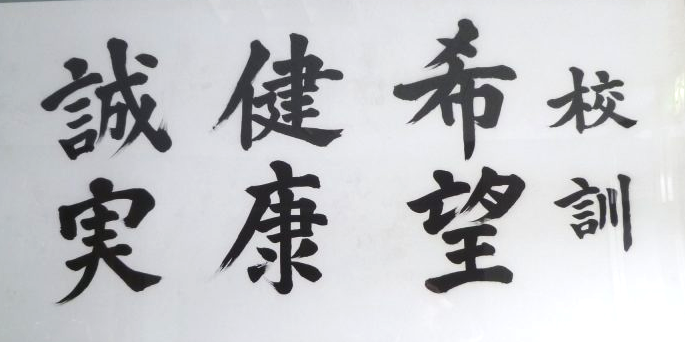 校訓
希望
健康
誠実